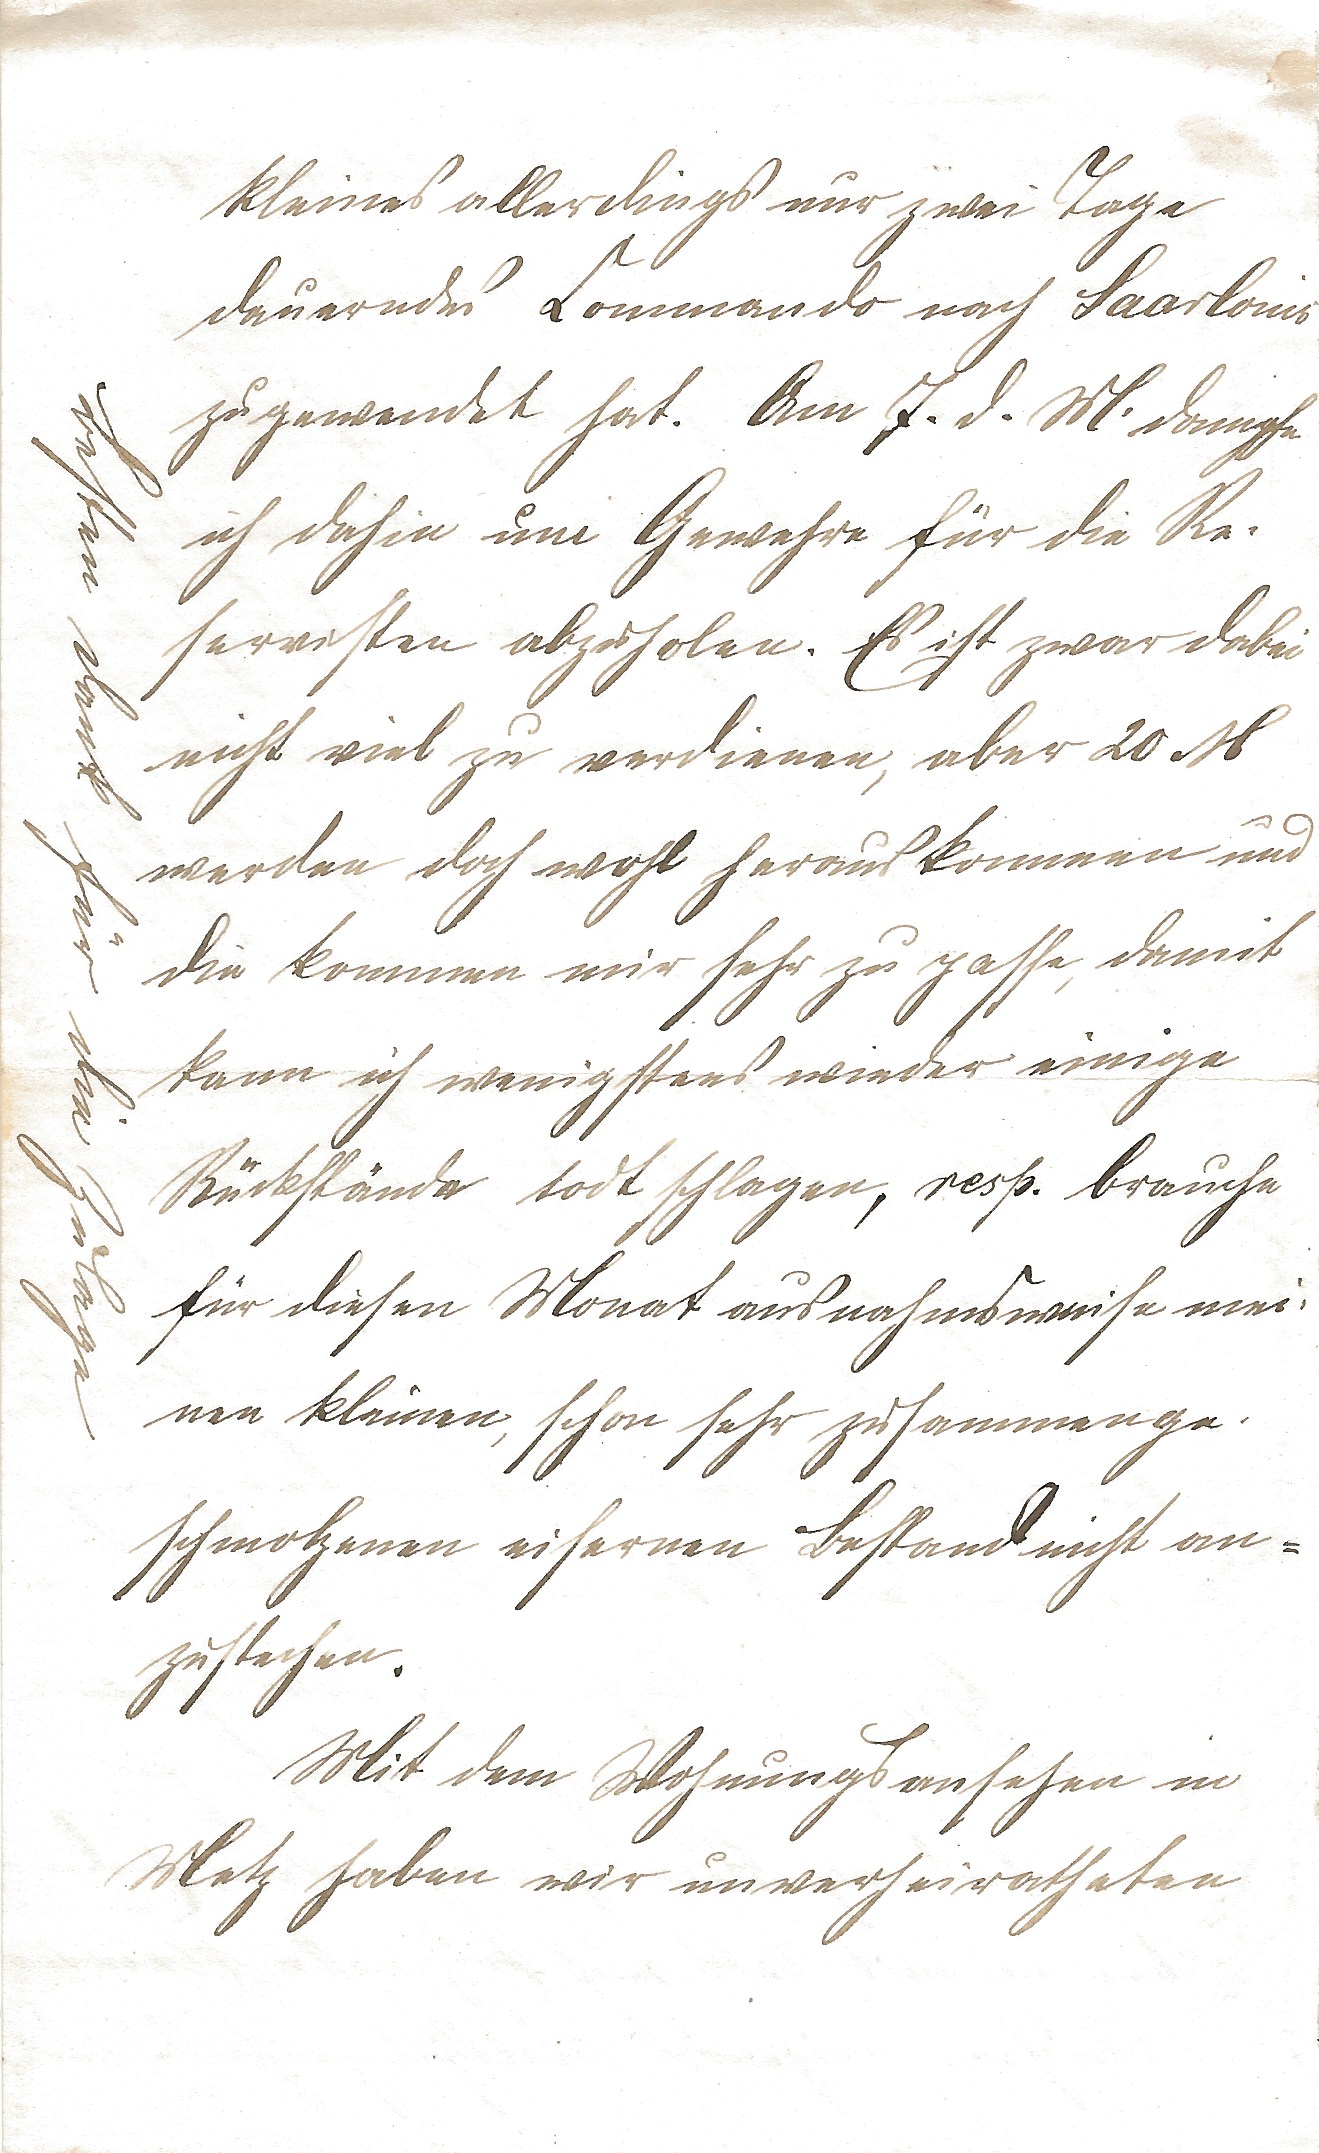 kleines allerdings nur zwei Tage
dauerndes Commando nach Saarlouis
zugewendet hat. Am 7. d. M. dampfe
ich dahin um Gewehre für die Re-
servisten abzuholen. Es ist zwar dabei
nicht viel zu verdienen, aber 20 M
werden doch wohl herauskommen und
die kommen mir sehr zu passe, damit
kann ich wenigstens wieder einige
Rückstände todt schlagen, resp. brauche
für diesen Monat ausnahmsweise mei-
nen kleinen, schon sehr zusammenge-
schmolzenen eisernen Bestand nicht an=
zustechen.
Mit dem Wohnungsansehen in
Metz haben wir unverheiratheten
Besten Dank für die Zulage